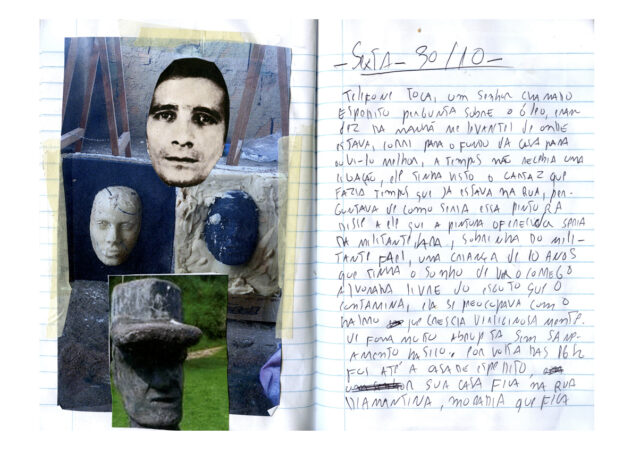 - SEXTA - 30/10 -
TELEFONE TOCA, UM SENHOR CHAMADO
ESPEDITO PERGUNTA SOBRE O ÓLEO, ERAM
DEZ DA MANHÃ ME LEVANTEI DE ONDE
ESTAVA, CORRI PARA O FUNDO DA CASA PARA
OUVI-LO MELHOR, A TEMPOS NÃO RECEBIA UMA
LIGAÇÃO, ELE TINHA VISTO O CARTAZ QUE
FAZIA TEMPOS QUE JÁ ESTAVA NA RUA, PER-
GUNTAVA DE COMO SERIA ESSA PINTURA
DISSE A ELE QUE A PINTURA OFERECIDA SERIA
DA MILITANTE, SOBRINHA DO MILI-
TANTE, UMA CRIANÇA DE 10 ANOS
QUE TINHA O SONHO DE VER O CÓRREGO
ALVORADA LIVRE DO ESGOTO QUE O
CONTAMINA, ELA SE PREOCUPAVA COM O
MATO QUE CRESCIA
DE FORMA MUITO ABRUPTA SEM SANE-
AMENTO BÁSICO. POR VOLTA DAS 16h
FUI ATÉ A CASA DE ESPEDITO,
SUA CASA FICA NA RUA
DIAMANTINA, MORADIA QUE FICA